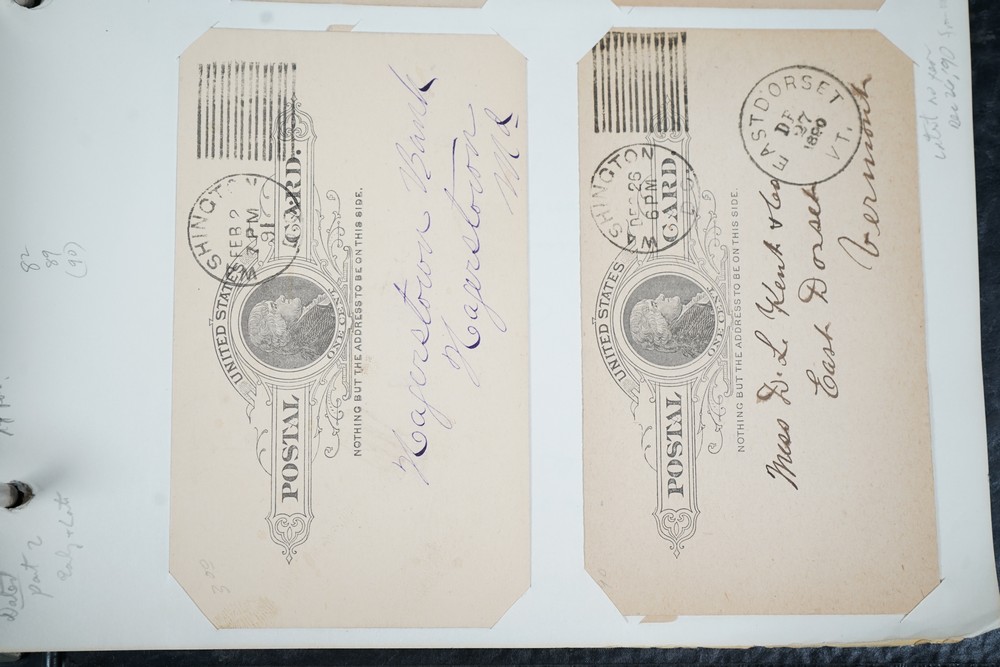 Dates
Part 2
Early + Late
82
89
(90)
WASHINGTON
FEB 2
7 PM
91
UNITED STATES
POSTAL CARD.
ONE CENT.
NOTHING BUT THE ADDRESS TO BE ON THIS SIDE.
Hagerstown Bank
Hagerstown
Md
3 00
WASHINGTON
DEC 26
6 PM
EAST DORSET
27
1890
VT.
UNITED STATES
POSTAL CARD
ONE CENT
NOTHING BUT THE ADDRESS TO BE ON THIS SIDE.
Miss D. L. Kent
East Dorset
Vermont
Dec 26, '90